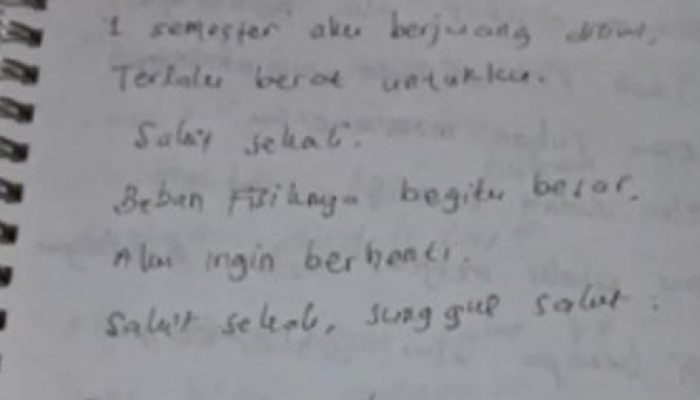 1 semester aku berjuang disini.
Terlalu berat untukku.
Sakit sekali.
Beban Fisiknya begitu besar.
Aku ingin berhenti.
Sakit sekali, sungguh sakit.